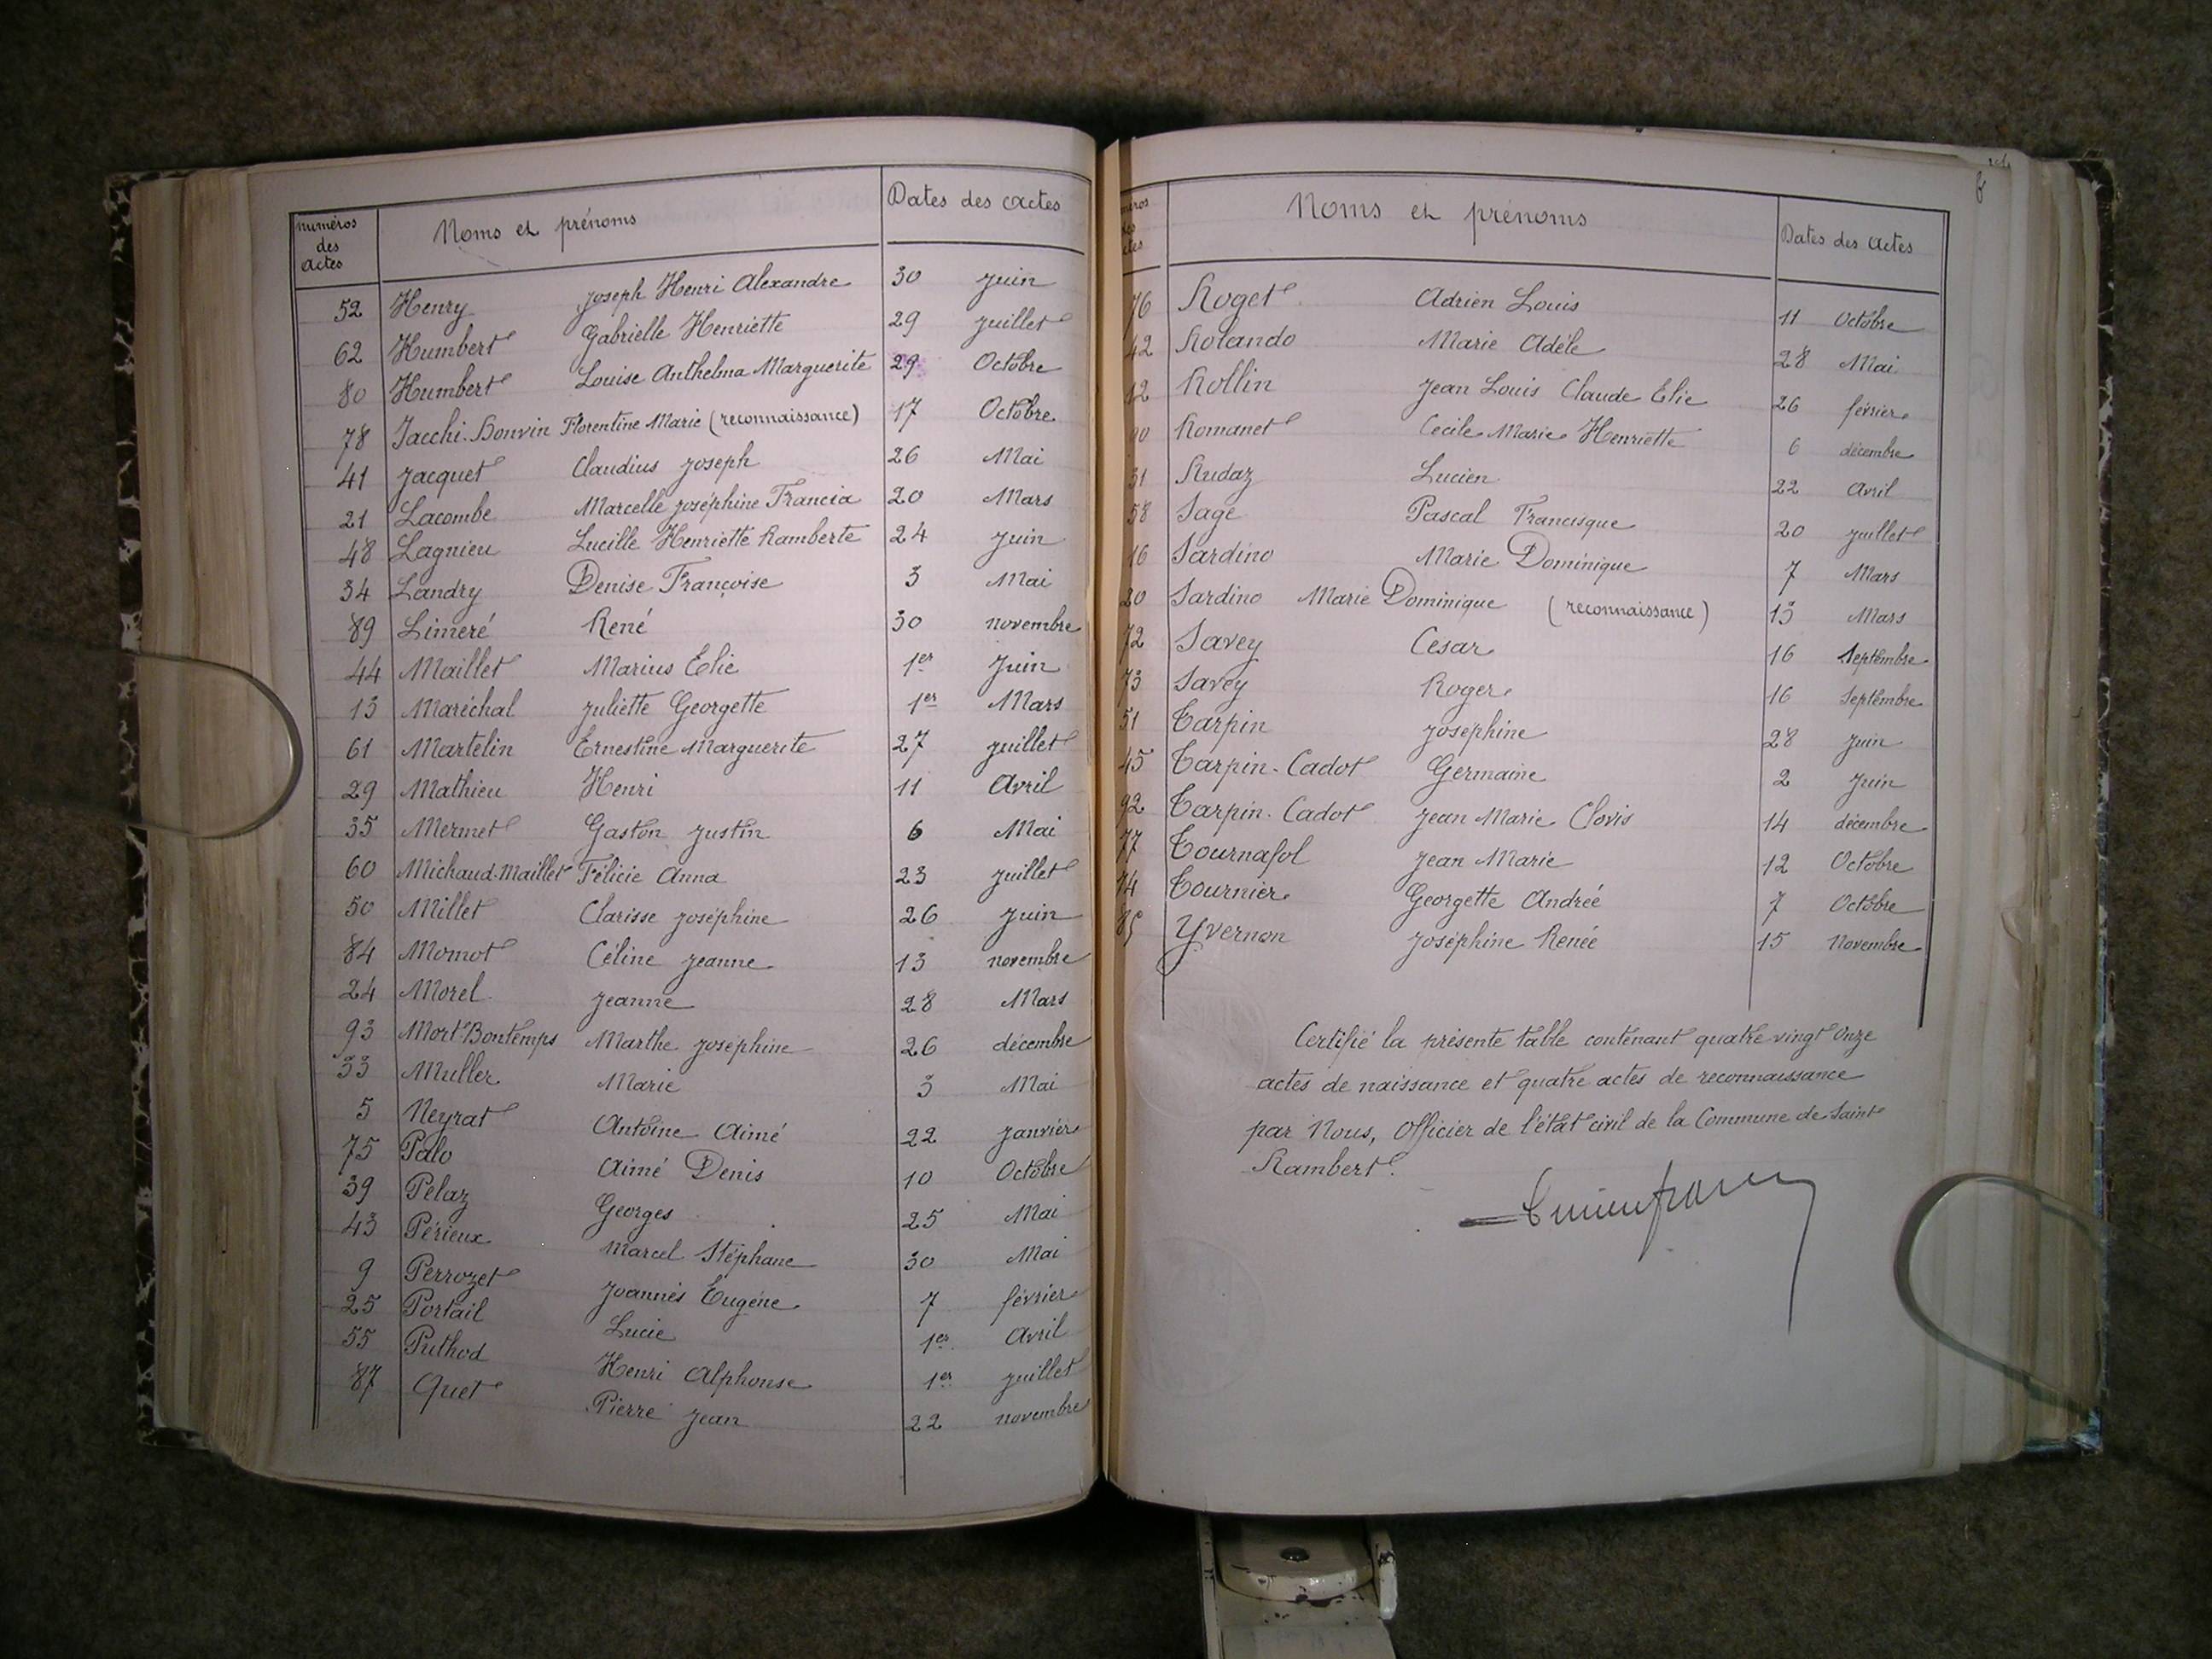 numéros des actes Noms et prénoms Dates des actes
52 Henry Joseph Henri Alexandre 30 Juin
62 Humbert Gabrielle Henriette 29 Juillet
80 Humbert Louise Anthelma Marguerite 29 Octobre
78 Jacchi-Bonvin Florentine Marie (reconnaissance) 17 Octobre
41 Jacquet Claudius Joseph 26 Mai
21 Lacombe Marcelle Joséphine Francia 20 Mars
48 Lagnieu Lucille Henriette Ramberte 24 Juin
34 Landry Denise Françoise 3 Mai
89 Limeré René 30 novembre
44 Maillet Marius Elie 1er Juin
13 Maréchal Juliette Georgette 1er Mars
61 Martelin Ernestine Marguerite 27 Juillet
29 Mathieu Henri 11 Avril
35 Mermet Gaston Justin 6 Mai
60 Michaud-Maillet Félicie Anna 23 Juillet
50 Millet Clarisse Joséphine 26 Juin
84 Momot Céline Jeanne 13 novembre
24 Morel Jeanne 28 Mars
93 Mort-Bontemps Marthe Joséphine 26 décembre
33 Muller Marie 3 Mai
5 Neyrat Antoine Aimé 22 Janvier
75 Palo Aimé Denis 10 Octobre
39 Pélaz Georges 25 Mai
43 Périeux Marcel Stéphane 30 Mai
9 Perrozet Joannès Eugène 7 février
25 Portail Lucie 1er Avril
55 Puthod Henri Alphonse 1er Juillet
87 Quet Pierre Jean 22 novembre
Noms et prénoms Dates des actes
76 Roget Adrien Louis 11 Octobre
42 Rolando Marie Adèle 28 Mai
12 Rollin Jean Louis Claude Elie 26 février
90 Romanet Cécile Marie Henriette 6 décembre
31 Rudaz Lucien 22 Avril
58 Sage Pascal Francisque 20 Juillet
16 Sardino Marie Dominique 7 Mars
20 Sardino Marie Dominique (reconnaissance) 13 Mars
72 Savey César 16 Septembre
73 Savey Roger 16 Septembre
51 Tarpin Joséphine 28 Juin
45 Tarpin-Cadot Germaine 2 Juin
92 Tarpin-Cadot Jean Marie Clovis 14 décembre
77 Tournafol Jean Marie 12 Octobre
74 Tournier Georgette Andrée 7 Octobre
85 Yvernon Joséphine Renée 15 Novembre
Certifié la présente table contenant quatre vingt onze
actes de naissance et quatre actes de reconnaissance
par Nous, Officier de l'état civil de la Commune de Saint
Rambert.